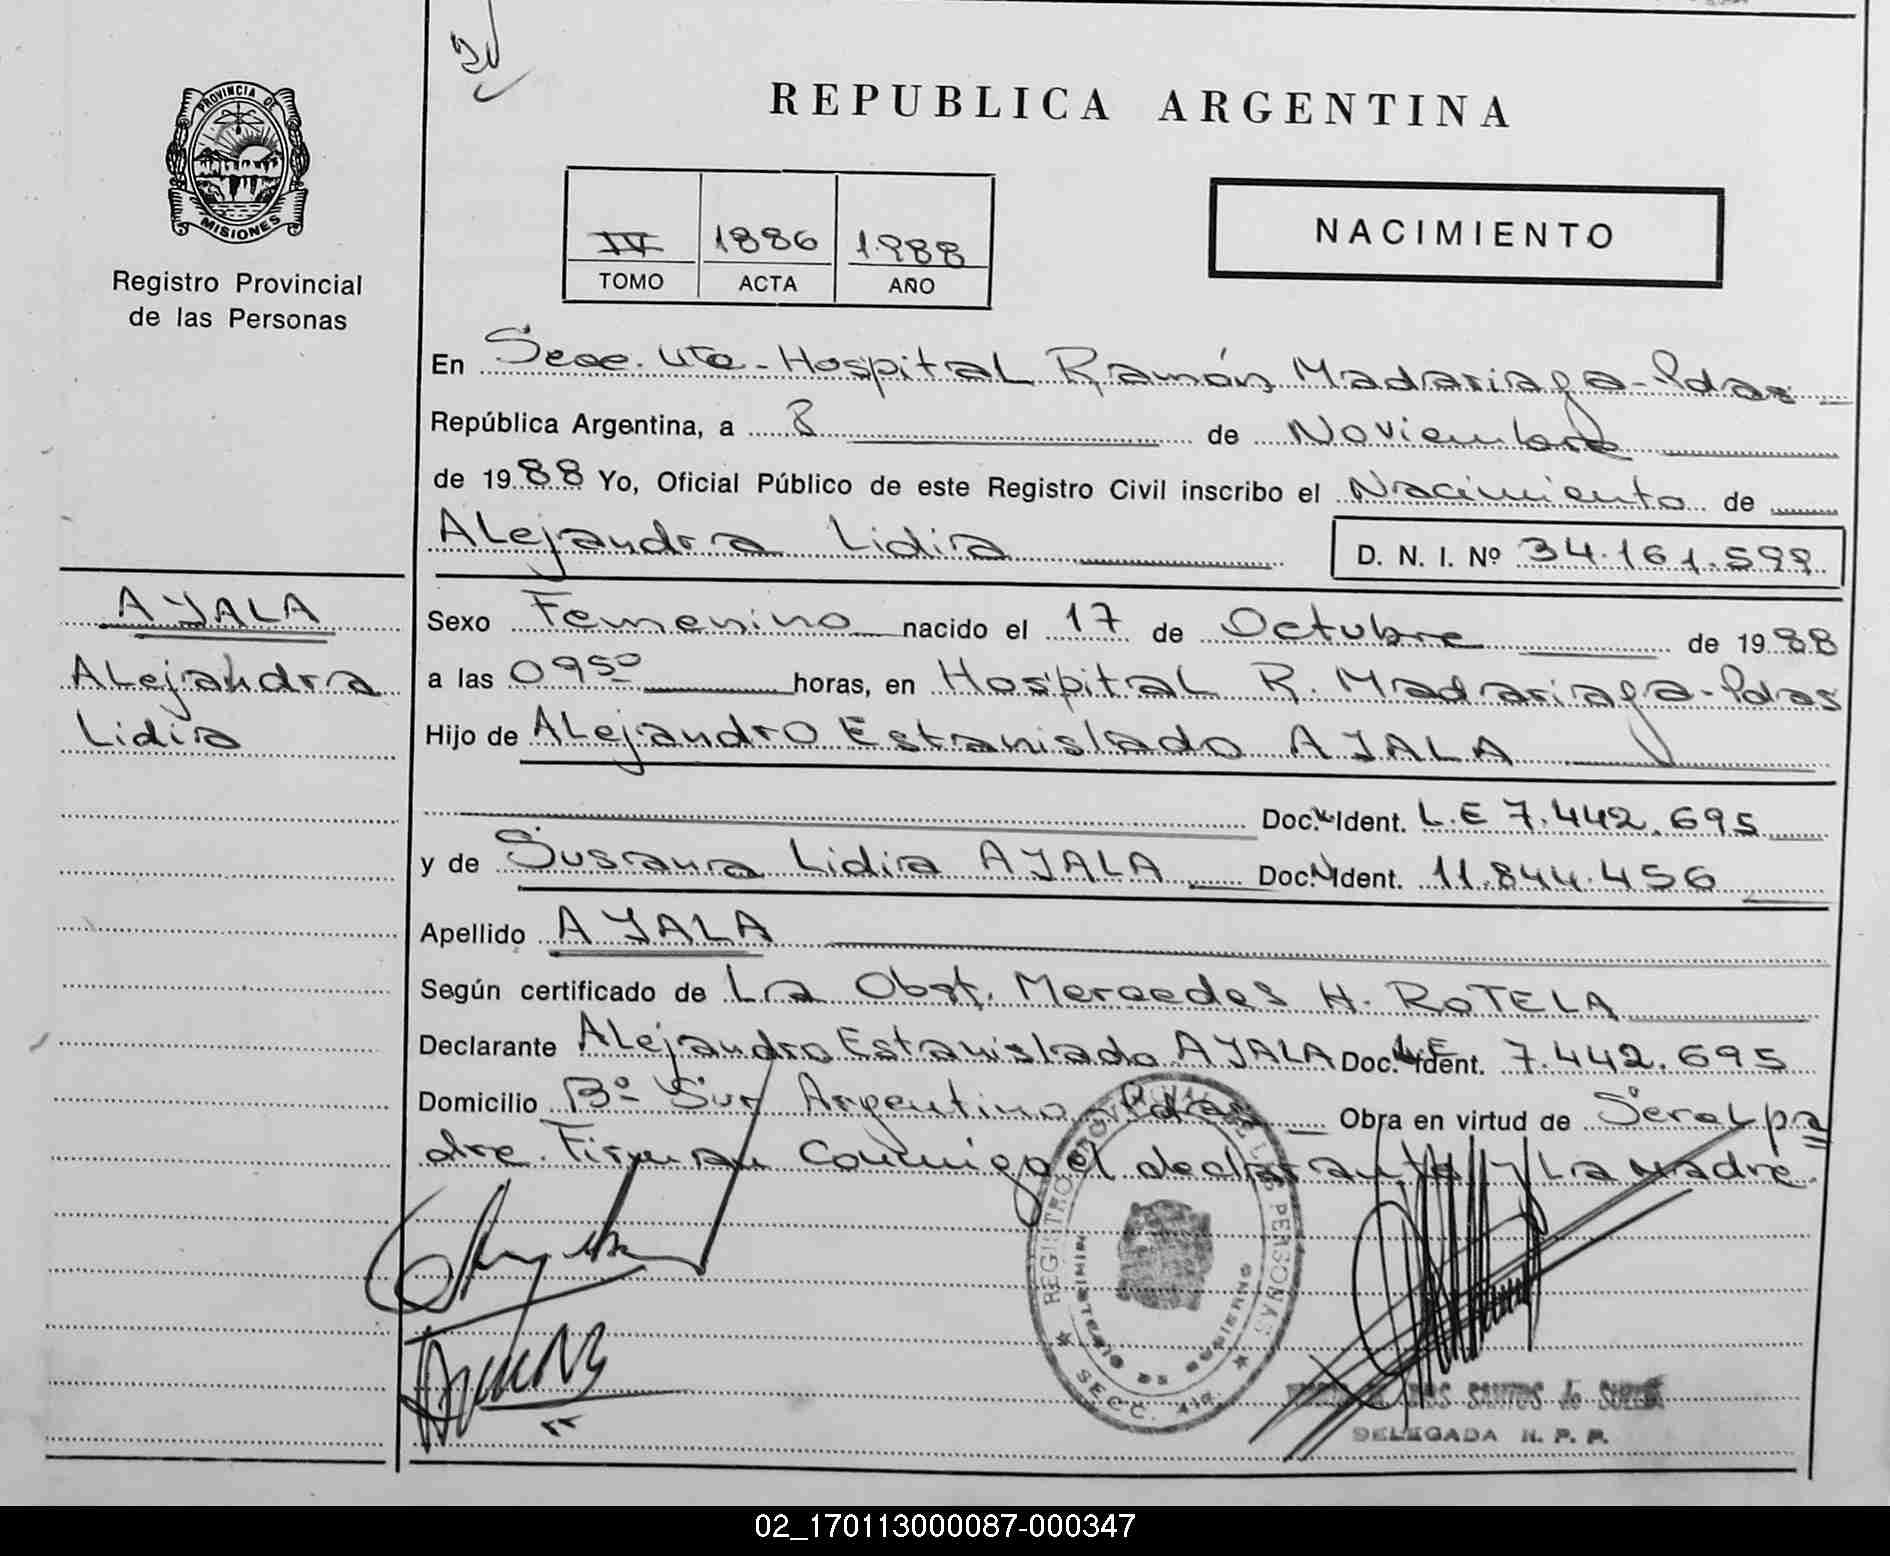 PROVINCIA DE
MISIONES
Registro Provincial
de las Personas
REPUBLICA ARGENTINA
IV 1886 1988
TOMO ACTA AÑO
NACIMIENTO
En Secc. 4ta - Hospital Ramón Madariaga - Pdas
República Argentina, a 8 de Noviembre
de 1988 Yo, Oficial Público de este Registro Civil inscribo el Nacimiento de
Alejandra Lidia D. N. I. Nº 34.161.599
AYALA
Alejandra
Lidia
Sexo Femenino nacido el 17 de Octubre de 1988
a las 0950 horas, en Hospital R. Madariaga - Pdas
Hijo de Alejandro Estanislado AYALA
Doc. Ident. L.E 7.442.695
y de Susana Lidia AYALA Doc. Ident. 11.844.456
Apellido AYALA
Según certificado de La Obst. Mercedes H. ROTELA
Declarante Alejandro Estanislado AYALA Doc. L.E Ident. 7.442.695
Domicilio Bº Sur Argentino - Pdas Obra en virtud de Ser el pa
dre. Firman Conmigo el declarante y La Madre.
REGISTRO PERSONAS
MINISTERIO DE GOBIERNO
SECC. 4ta.
SANTOS de
DELEGADA R. P. P.
02_170113000087-000347